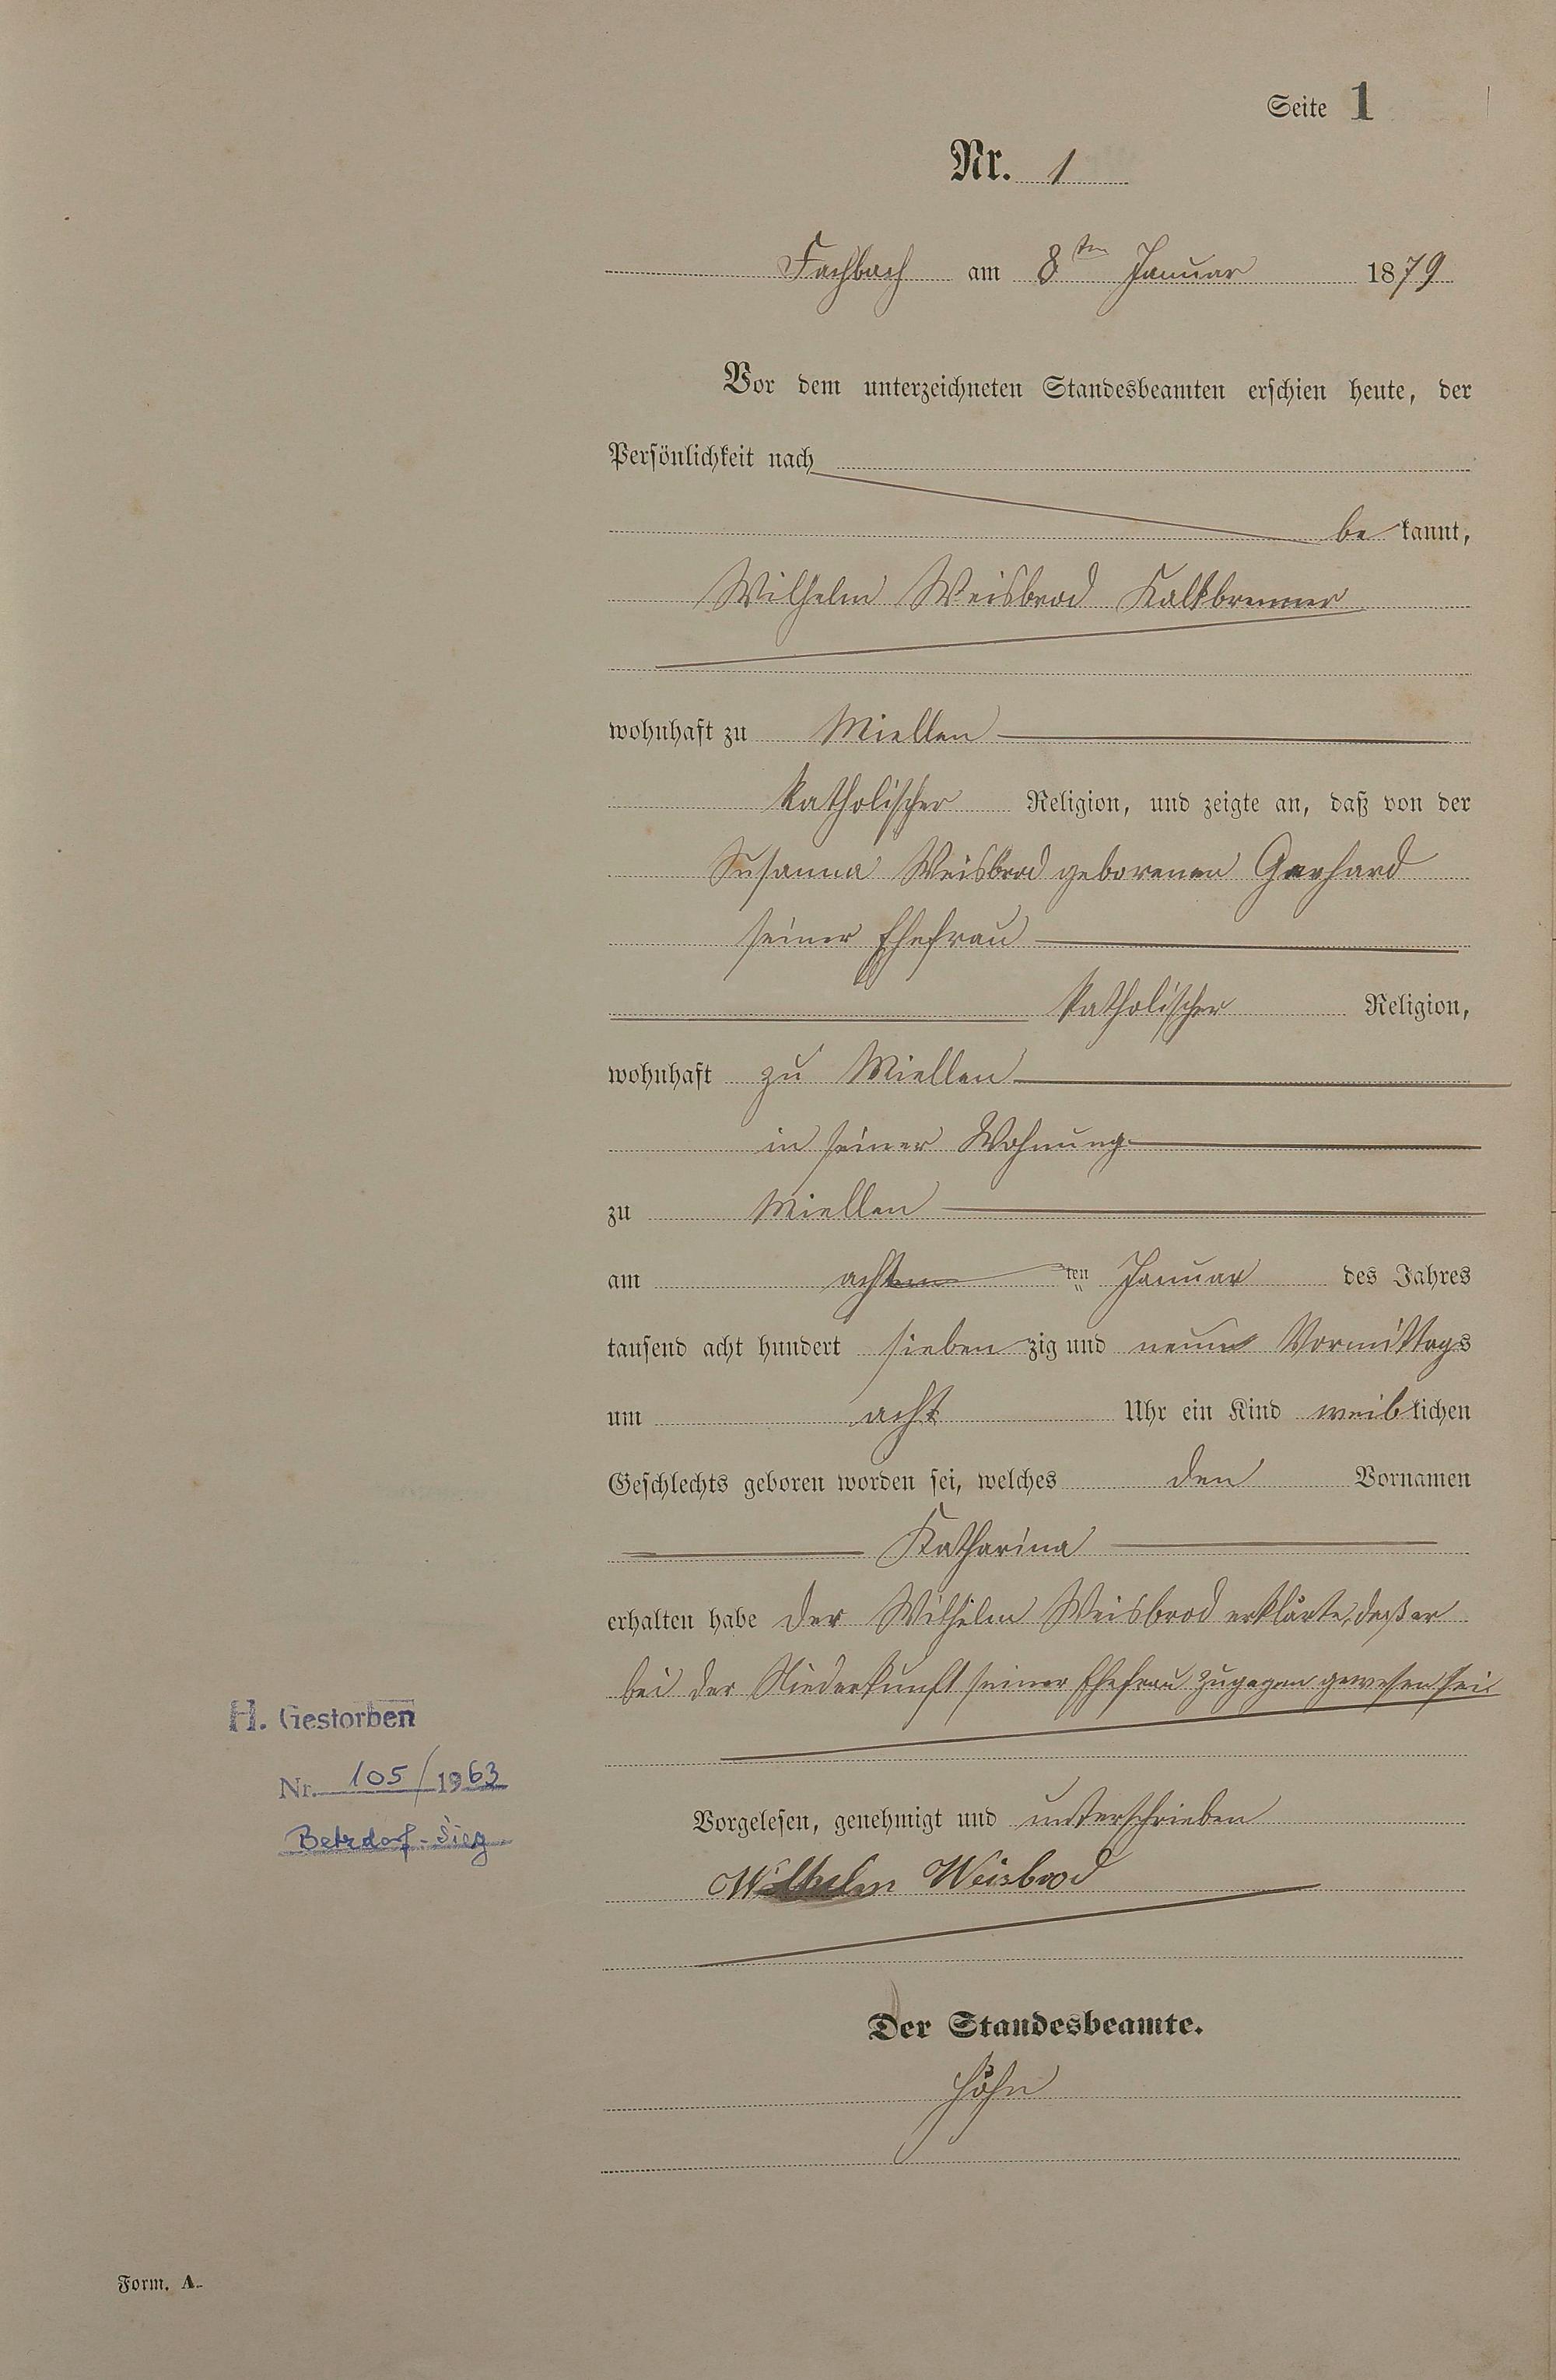 Seite 1
Nr. 1
Fachbach am 8ten Januar 1879
Vor dem unterzeichneten Standesbeamten erschien heute, der
Persönlichkeit nach
bekannt,
Wilhelm Weisbrod Kalkbrenner
wohnhaft zu Miellen
katholischer Religion, und zeigte an, daß von der
Susanna Weisbrod geborenen Gerhard
seiner Ehefrau
katholischer Religion,
wohnhaft zu Miellen
in seiner Wohnung
zu Miellen
am achten ten Januar des Jahres
tausend acht hundert siebenzig und neun Vormittags
um acht Uhr ein Kind weiblichen
Geschlechts geboren worden sei, welches den Vornamen
Katharina
erhalten habe der Wilhelm Weisbrod erklärte, daß er
bei der Niederkunft seiner Ehefrau zugegen gewesen sei
H. Gestorben
Nr. 105/1963
Betzdorf-Sieg
Vorgelesen, genehmigt und unterschrieben
Wilhelm Weisbrod
Der Standesbeamte.
Höhn
Form. A.